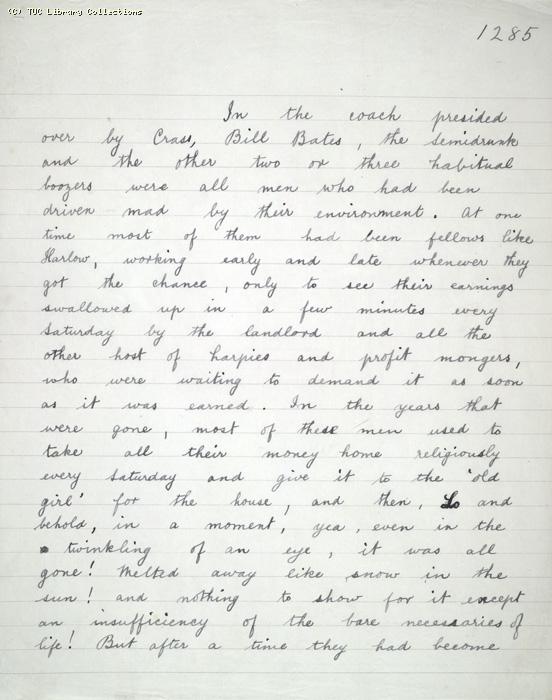 (C) TUC Library Collections
1285
In the coach presided
over by Crass, Bill Bates, the Semidrunk
and the other two or three habitual
boozers were all men who had been
driven mad by their environment. At one
time most of them had been fellows like
Harlow, working early and late whenever they
got the chance, only to see their earnings
swallowed up in a few minutes every
Saturday by the landlord and all the
other host of harpies and profit mongers,
who were waiting to demand it as soon
as it was earned. In the years that
were gone, most of these men used to
take all their money home religiously
every Saturday and give it to the 'old
girl' for the house, and then, Lo and
behold, in a moment, yea, even in the
twinkling of an eye, it was all
gone! Melted away like snow in the
sun! and nothing to show for it except
an insufficiency of the bare necessaries of
life! But after a time they had become